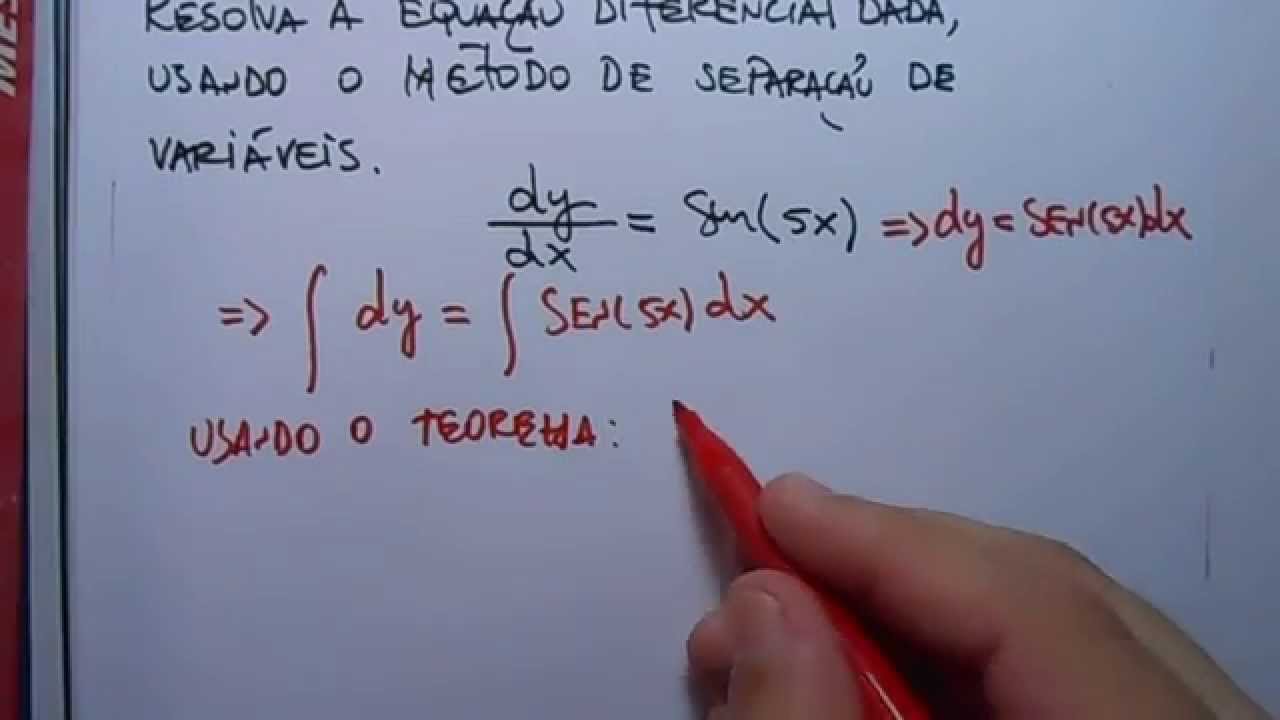 RESOLVA A EQUAÇÃO DIFERENCIAL DADA,
USANDO O MÉTODO DE SEPARAÇÃO DE
VARIÁVEIS.
dy/dx = Sen(5x) => dy = SEN(5x)dx
=> ∫ dy = ∫ SEN(5x) dx
USANDO O TEOREMA: